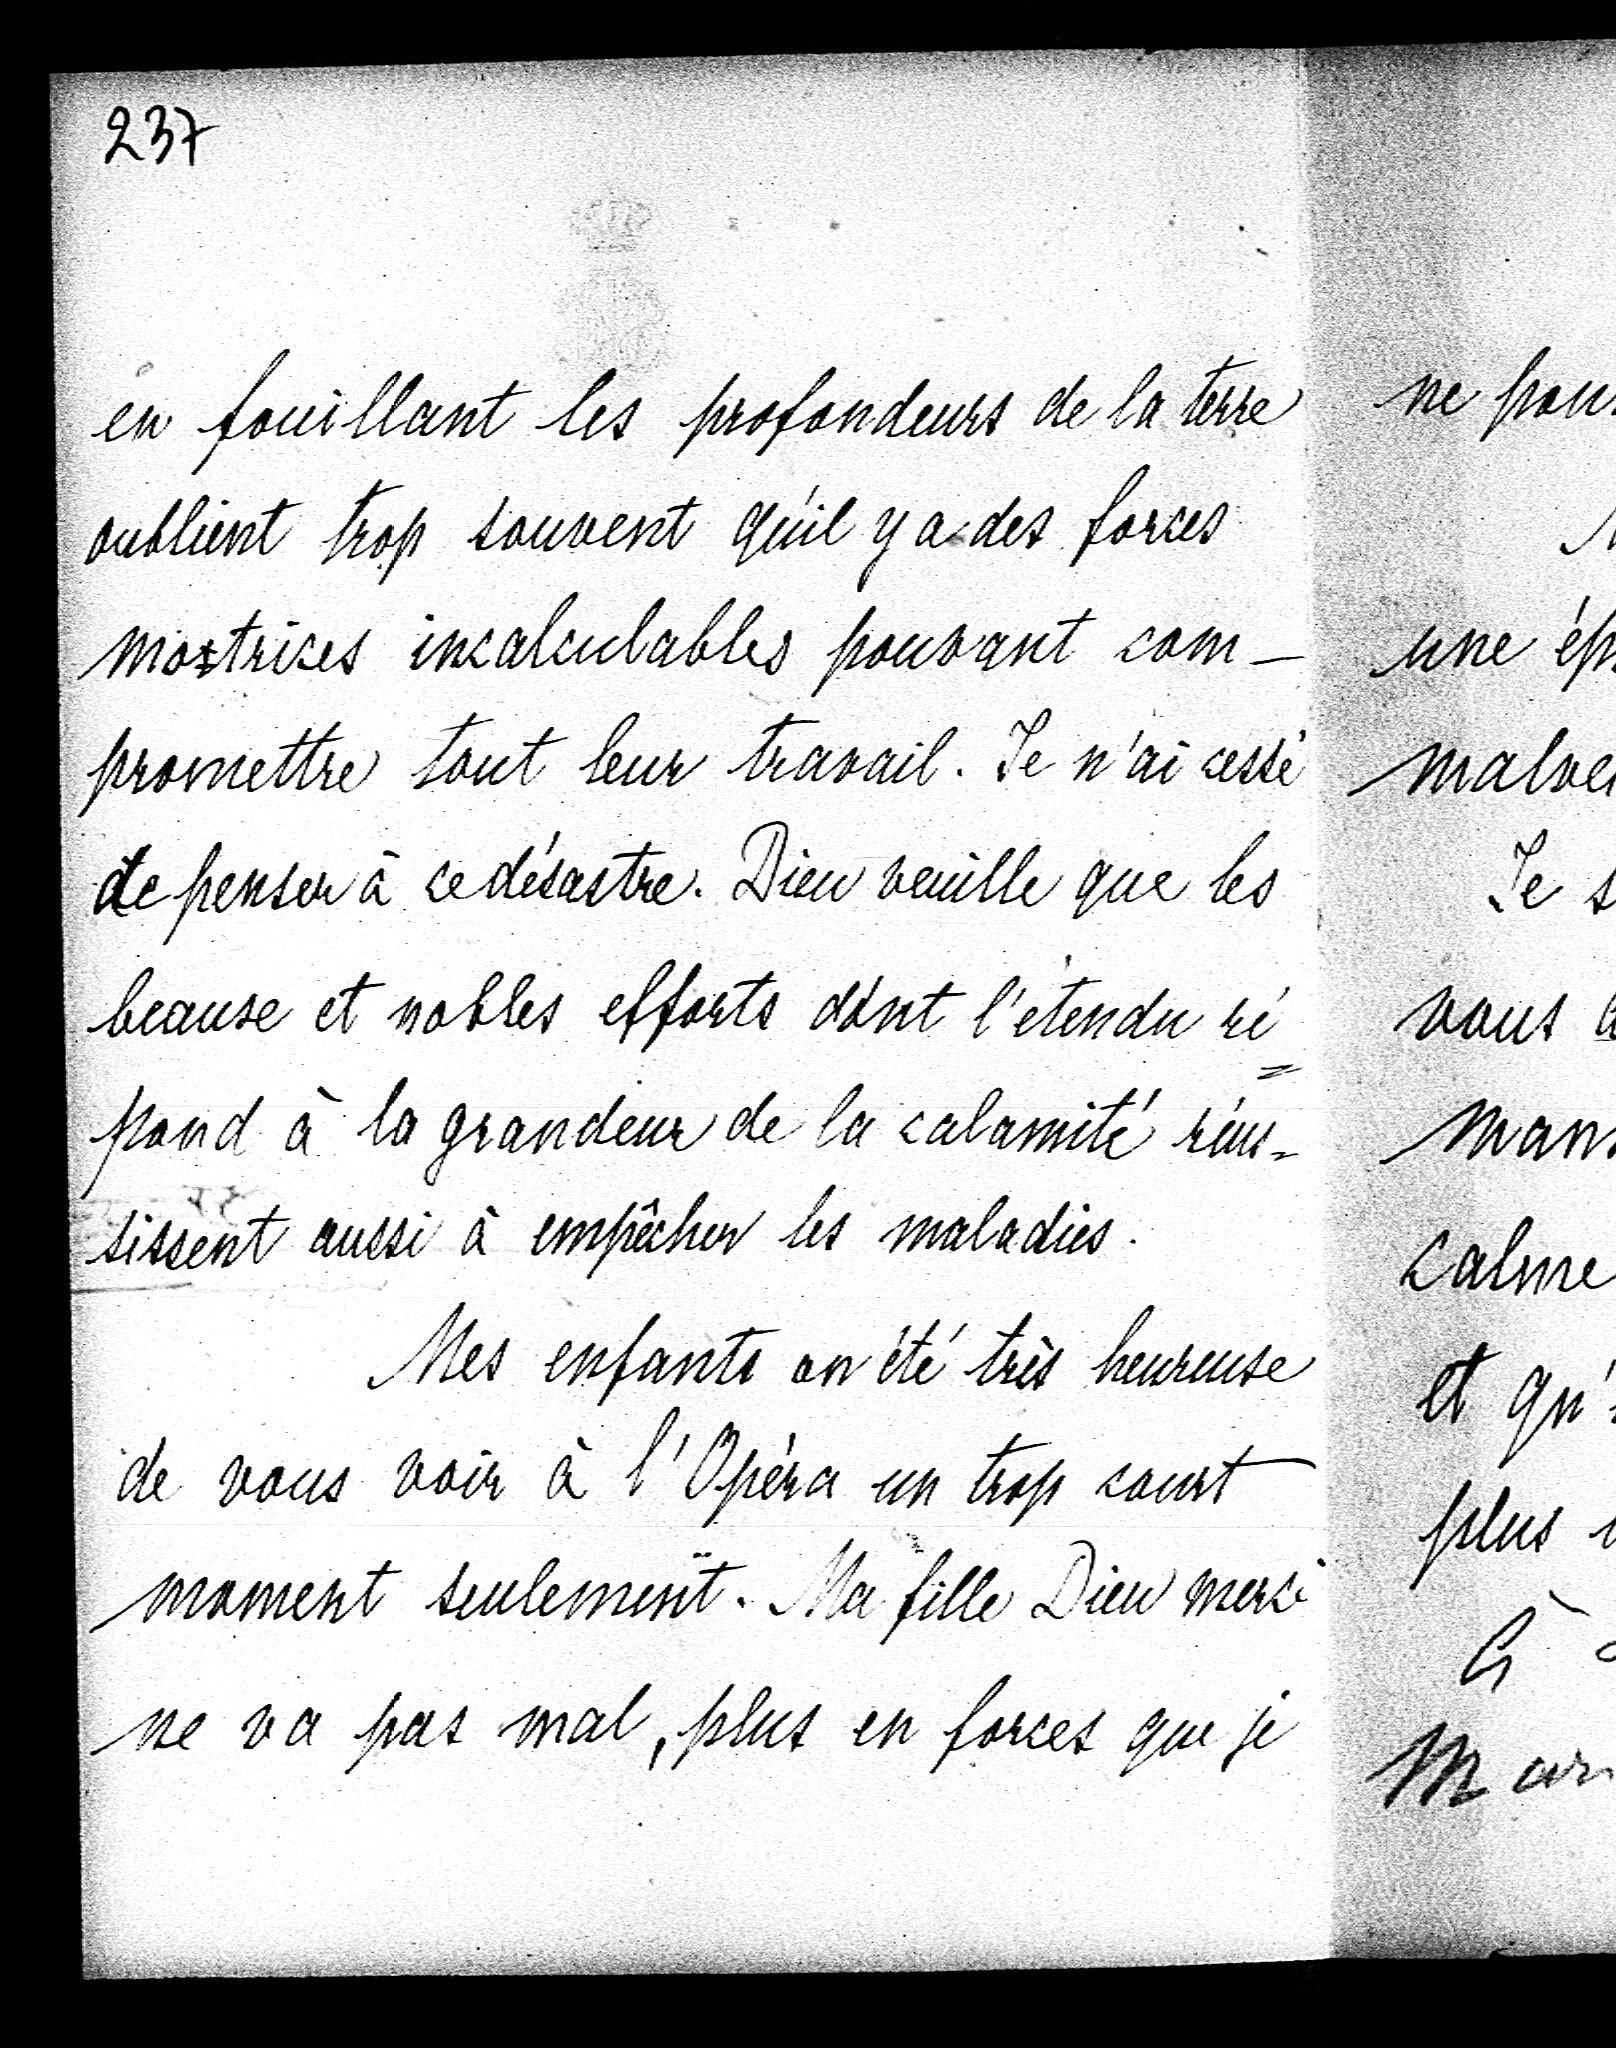 237
en fouillant les profondeurs de la terre
oublient trop souvent qu'il y a des forces
motrices incalculables pouvant com-
promettre tout leur travail. Je n'ai cessé
de penser à ce désastre. Dieu veuille que les
beause et nobles efforts dont l'étendu ré=
pond à la grandeur de la calamité réus-
sissent aussi à empêcher les maladies.
Mes enfants on été très heureuse
de vous voir à l'Opéra un trop court
moment seulement. Ma fille Dieu merci
ne va pas mal, plus en forces que je
ne pou
une ép
malve
Je s
vous
man
calme
et qu'
plus